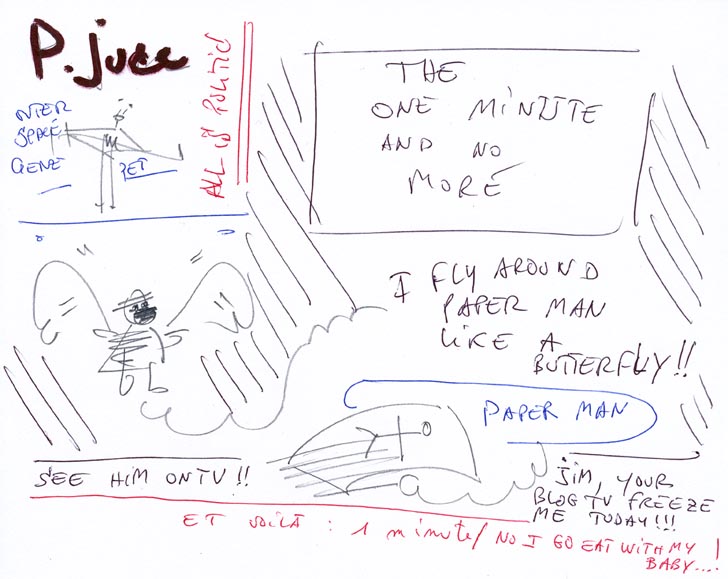 P. juce
ALL is Politic
INTER
SPACE
GENE
PET
THE
ONE MINUTE
AND NO
MORE
I FLY AROUND
PAPER MAN
LIKE A
BUTTERFLY!!
PAPER MAN
SEE HIM ON TV!!
JIM, YOUR
BLOG TV FREEZE
ME TODAY!!!
ET VOILÀ : 1 minute/ NO I GO EAT WITH MY
BABY....!